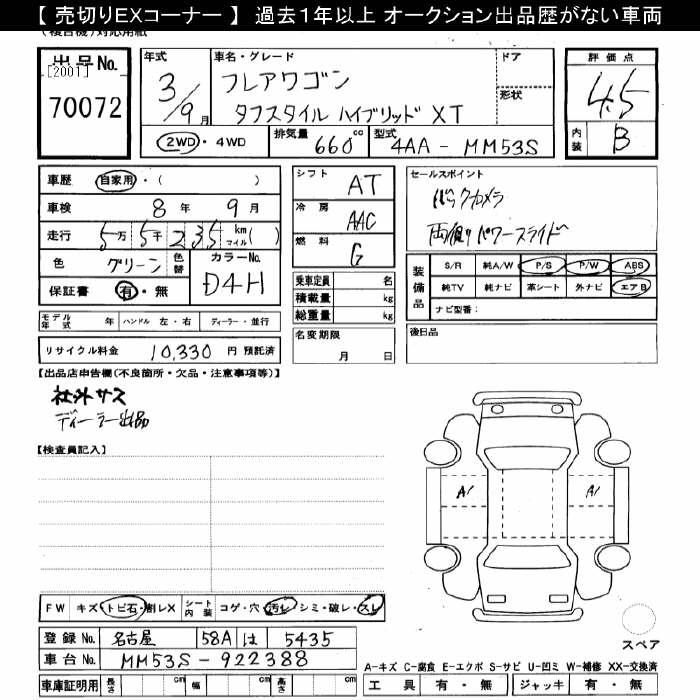 【 売切りEXコーナー 】 過去１年以上 オークション出品歴がない車両
(複合機)対応用紙
出品No.
[2001]
70072
年式
3/9月
車名・グレード
フレアワゴン
タフスタイル ハイブリッド XT
ドア
形状
評価点
4.5
内装
B
2WD・4WD
排気量
660 cc
型式
4AA - MM53S
車歴
自家用・( )
車検
8 年 9 月
走行
5万 5千 235 km マイル( )
色
グリーン
色替
カラーNo.
D4H
保証書
有・無
シフト
AT
冷房
AAC
燃料
G
乗車定員 名
積載量 kg
総重量 kg
名変期限
月 日
セールスポイント
バックカメラ
両側パワースライド
装備品
S/R 純A/W P/S P/W ABS
純TV 純ナビ 革シート 外ナビ エアB
ナビ型番：
後日品
モデル年式 年 ハンドル 左・右 ディーラー・並行
リサイクル料金 10,330 円 預託済
【出品店申告欄(不良箇所・欠品・注意事項等)】
社外サス
ディーラー出品
【検査員記入】
A1
A1
FW キズ・トビ石・割レX シート内装 コゲ・穴・汚レ・シミ・破レ・スレ
登録No. 名古屋 58A は 5435
車台No. MM53S-922388
車庫証明用 長さ cm 幅 cm 高さ cm
スペア
A-キズ C-腐食 E-エクボ S-サビ U-凹ミ W-補修 XX-交換済
工具 有・無 ジャッキ 有・無